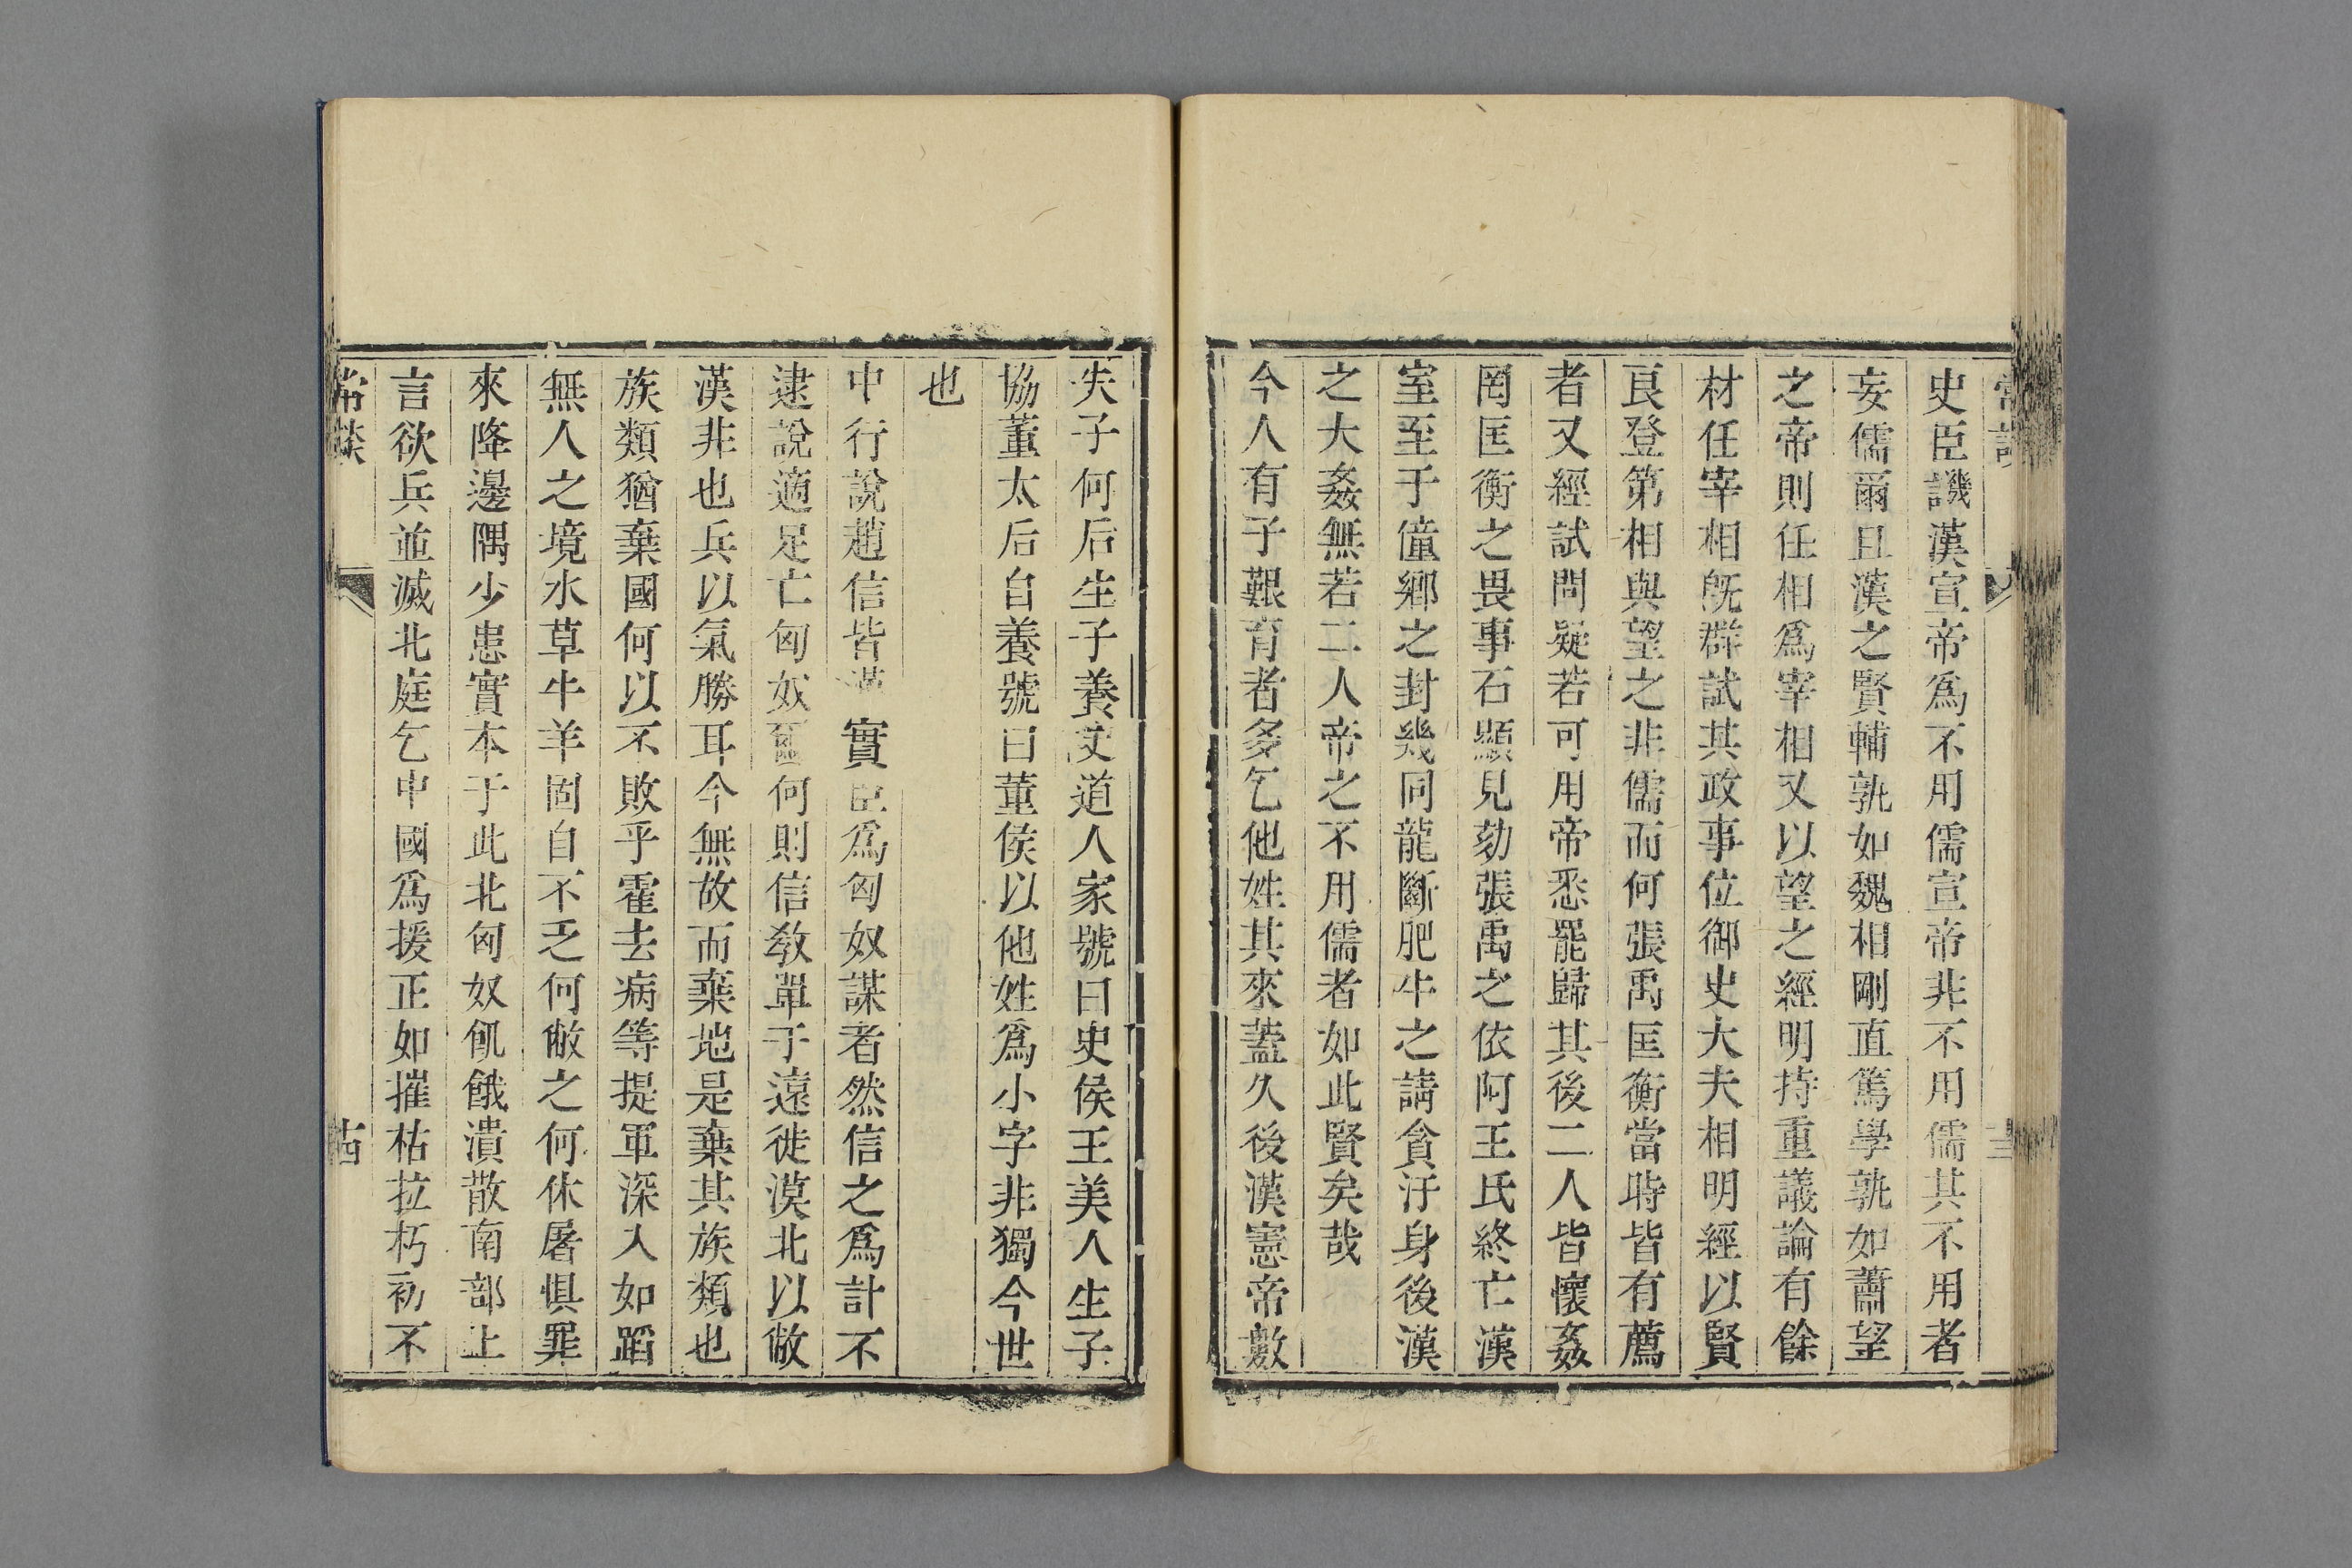 史臣譏漢宣帝爲不用儒宣帝非不用儒其不用者
妄儒爾且漢之賢輔孰如魏相剛直篤學孰如蕭望
之帝則任相爲宰相又以望之經明持重議論有餘
材任宰相旣群試其政事位御史大夫相明經以賢
良登第相與望之非儒而何張禹匡衡當時皆有薦
者又經試問疑若可用帝悉罷歸其後二人皆懷姦
罔匡衡之畏事石顯見劾張禹之依阿王氏終亡漢
室至于僮鄉之封幾同龍斷肥牛之請貪汙身後漢
之大姦無若二人帝之不用儒者如此賢矣哉
今人有子艱育者多乞他姓其來葢久後漢憲帝數
失子何后生子養史道人家號曰史侯王美人生子
協董太后自養號曰董侯以他姓爲小字非獨今世
也
中行說趙信皆漢實臣爲匈奴謀者然信之爲計不
逮說適足亡匈奴 何則信教單于遠徙漠北以敝
漢非也兵以氣勝耳今無故而棄地是棄其族類也
族類猶棄國何以不敗乎霍去病等提軍深入如蹈
無人之境水草牛羊固自不乏何敝之何休屠惧罪
來降邊隅少患實本于此北匈奴飢餓潰散南部上
言欲兵並滅北庭乞中國爲援正如摧枯拉朽初不
常談
古